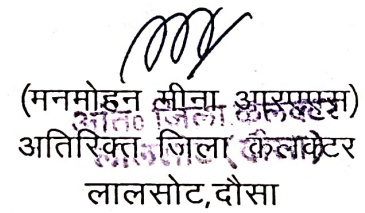 (मनमोहन मीना आरएएस)
अति० जिला कलक्टर
अतिरिक्त जिला कलक्टर
लालसोट (दौसा)
लालसोट,दौसा